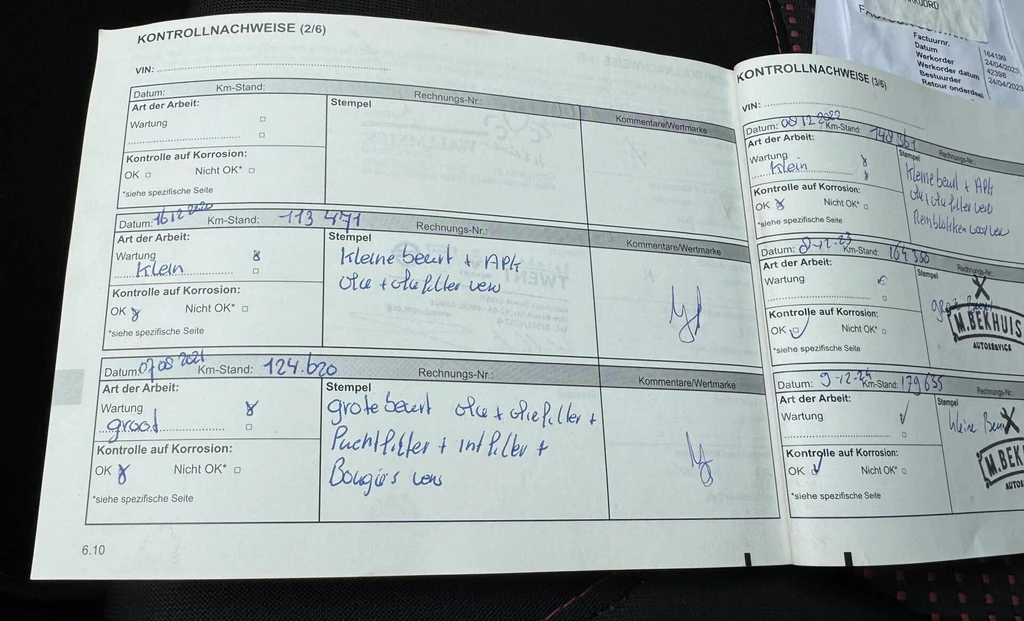 KONTROLLNACHWEISE (2/6)
VIN:
Datum: Km-Stand: Rechnungs-Nr.:
Art der Arbeit: Stempel Kommentare/Wertmarke
Wartung
Kontrolle auf Korrosion:
OK Nicht OK*
*siehe spezifische Seite
Datum: 16 12 2020 Km-Stand: 113 471 Rechnungs-Nr.:
Art der Arbeit: Stempel Kommentare/Wertmarke
Wartung
Klein
Kleine beurt + APK
olie + oliefilter verv
Kontrolle auf Korrosion:
OK Nicht OK*
*siehe spezifische Seite
Datum: 07 08 2021 Km-Stand: 124.620 Rechnungs-Nr.:
Art der Arbeit: Stempel Kommentare/Wertmarke
Wartung
groot
grote beurt olie + oliefilter +
+ int filter +
Bougies verv
Kontrolle auf Korrosion:
OK Nicht OK*
*siehe spezifische Seite
6.10
KONTROLLNACHWEISE (3/6)
VIN:
Datum: 08 12 2022 Km-Stand: 148 861 Rechnungs-Nr.
Art der Arbeit: Stempel
Wartung
Klein
Kleine beurt + APK
olie + oliefilter verv
Remblokken
Kontrolle auf Korrosion:
OK Nicht OK*
*siehe spezifische Seite
Datum: 8-12-23 Km-Stand: Rechnungs-Nr.
Art der Arbeit: Stempel
Wartung
Kontrolle auf Korrosion:
OK Nicht OK*
*siehe spezifische Seite
M.BEKHUIS
AUTOSERVICE
Datum: 9-12-24 Km-Stand: 179 655 Rechnungs-Nr.
Art der Arbeit: Stempel
Wartung
kleine
Kontrolle auf Korrosion:
OK Nicht OK*
*siehe spezifische Seite
M.BEK
AUTOS
Factuurnr. 164199
Datum 24/04/2023
Werkorder 42398
Werkorder datum 24/04/2023
Bestuurder
Retour onderdeel